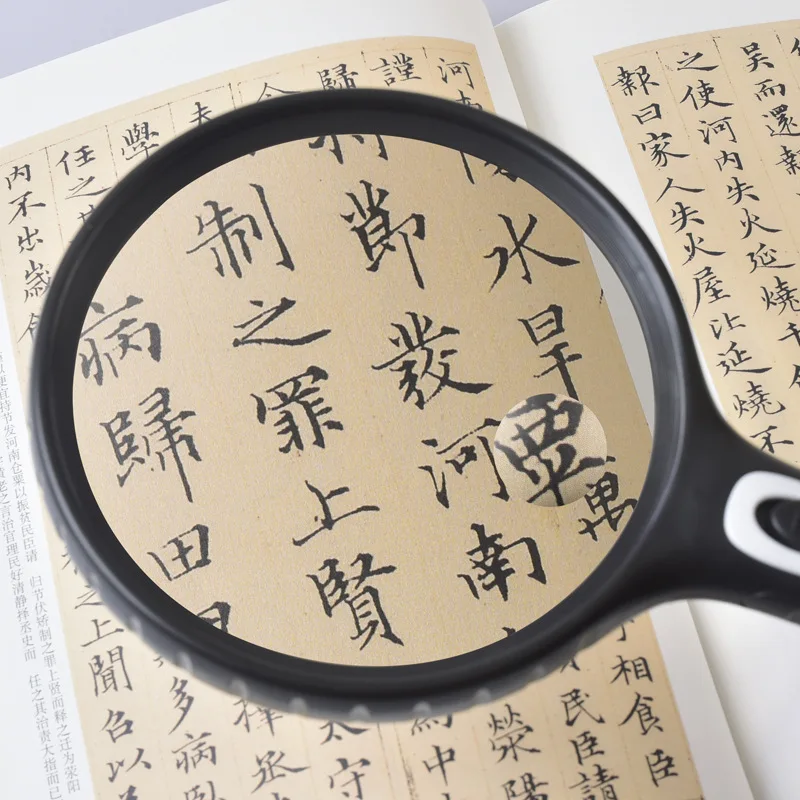 吴而還報
之使河内失火延燒千
報曰家人失火屋比延燒不
河南 水旱萬 相食臣
謹 節發河南 粟 民臣請
歸 制之罪上賢 滎陽
病歸田 為中
夫 太守
學 擇丞
任之 多病臥
内不出歲 之上聞召以
便宜持节发河南仓粟以振贫民臣请 归节伏矫制之罪上贤而释之迁为荥阳
黄老之言治官理民好清静择丞史而 任之其治责大指而已